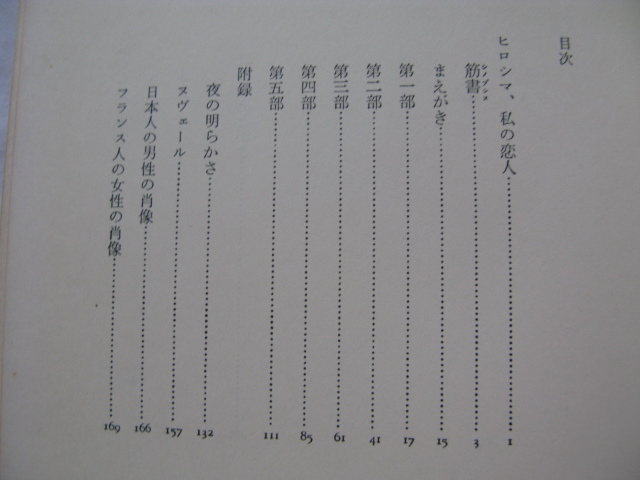 目次
ヒロシマ、私の恋人 1
筋書 シノプシス 3
まえがき 15
第一部 17
第二部 41
第三部 61
第四部 85
第五部 111
附録
夜の明らかさ 132
ヌヴェール 157
日本人の男性の肖像 166
フランス人の女性の肖像 169